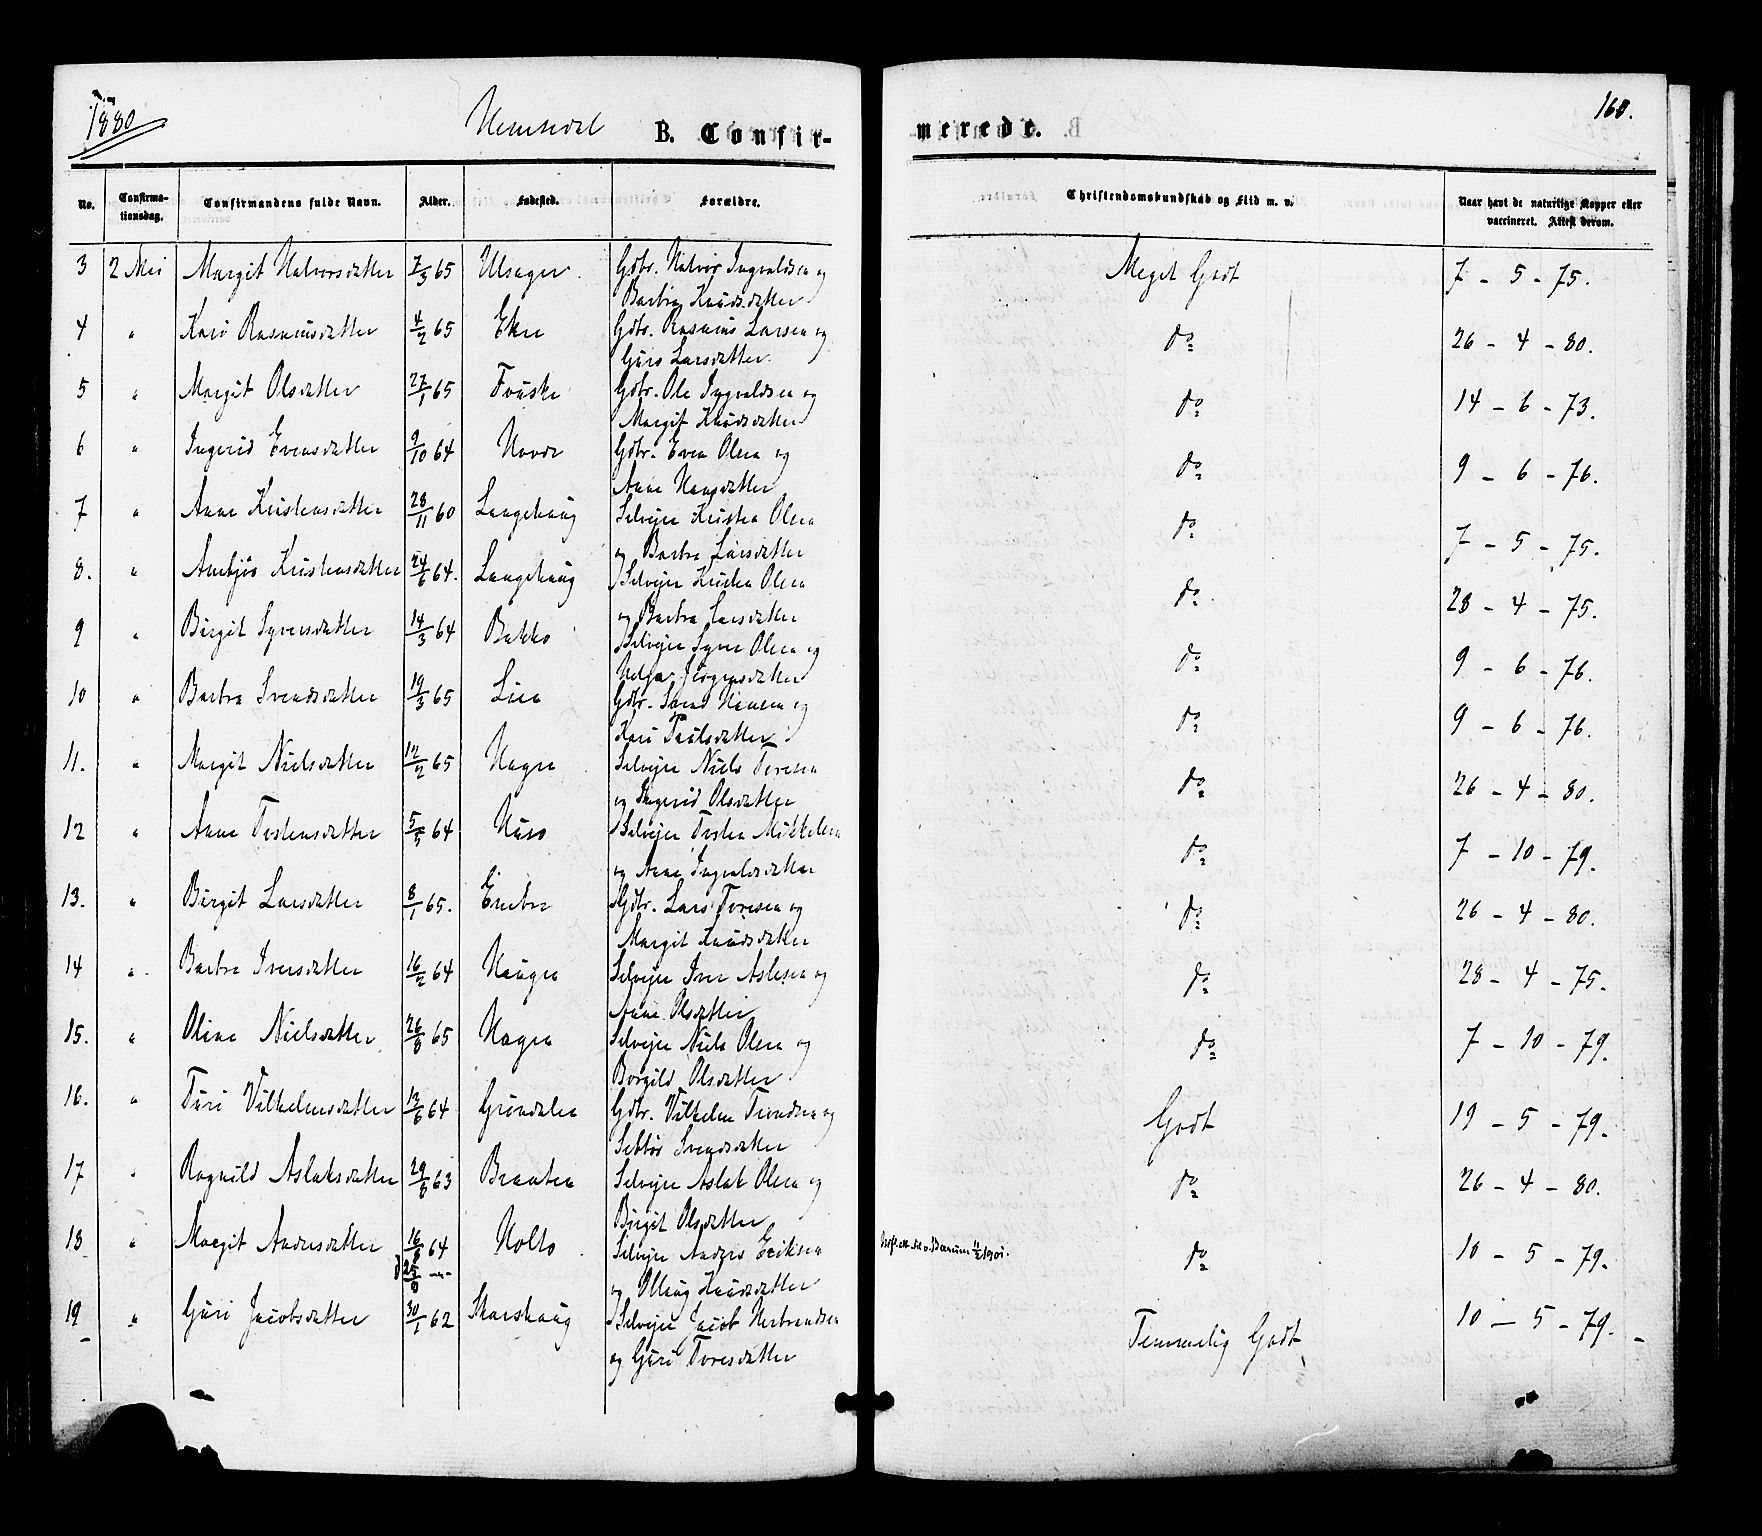 1880
Hemsedal B. Confir-
merede.
160.
No. Confirma-tionsdag. Confirmandens fulde Navn. Alder. Fødested. Forældre. Christendomskundskab og Flid m. v. Naar havt de naturlige Kopper eller vaccineret. Attest derom.
3 2 Mai Margit Halvorsdatter 7/3 65 Ulsager. Gdbr. Halvor Ingvaldsen og Meget Godt 7 - 5 - 75.
Barbra Knudsdatter
4 " Kari Rasmusdatter 4/2 65 Ekre Gdbr. Rasmus Larsen og do 26 - 4 - 80.
Guri Larsdatter.
5 " Margit Olsdatter 27/1 65 Fauske Gdbr. Ole Ingvaldsen og do 14 - 6 - 73.
Margit Knudsdatter
6 " Ingerid Evensdatter 9/10 64 Hovde Gdbr. Even Olsen og do 9 - 6 - 76.
Anne Hansdatter
7 " Anne Kristensdatter 28/11 60 Langehaug Selveier Kristen Olsen do 7 - 5 - 75.
og Barbra Larsdatter
8. " Kristensdatter 24/6 64. Langehaug Selveier Kristen Olsen do 28 - 4 - 75.
og Barbra Larsdatter
9 " Birgit Syversdatter 14/3 64 Bakko Selveier Syver Olsen og do 9 - 6 - 76.
Helga Jörgensdatter
10 " Barbra Svendsdatter 19/3 65 Lien Gdbr. Svend Hansen og do 9 - 6 - 76.
Kari Paulsdatter
11. " Margit Nielsdatter 12/2 65 Hagen Selveier Niels Toresen do 26 - 4 - 80.
og Ingerid Olsdatter
12 " Anne Testensdatter 5/5 64 Huso Selveier Testen Mikkelsen do 7 - 10 - 79.
og Anne Ingvaldsdatter
13. " Birgit Larsdatter 8/1 65. Eirebre Gdbr. Lars Toresen og do 26 - 4 - 80.
Margit Knudsdatter
14 " Barbra Iversdatter 16/2 64 Haugen Selveier Iver Aslesen og do 28 - 4 - 75.
Anne Olsdatter
15. " Oline Nielsdatter 26/8 65 Hagen Selveier Niels Olsen og do 7 - 10 - 79.
Borgild Olsdatter
16. " Turi Vilhelmsdatter 13/6 64 Grøndalen Gdbr. Vilhelm Trondsen og Godt 19 - 5 - 79.
Svendsdatter
17 " Ragnild Aslaksdatter 29/8 63 Braaten Selveier Aslak Olsen og do 26 - 4 - 80.
Birgit Olsdatter
18 " Margit Andersdatter 16/8 64 Holto Selveier Anders Eriksen do 10 - 5 - 79.
d 25/8 -"- og Ollaug Knudsdatter
19 " Guri Jacobsdatter 30/1 62 Skarshaug Selveier Jacob Herbrandsen Temmelig Godt 10 - 5 - 79.
og Guri Toresdatter